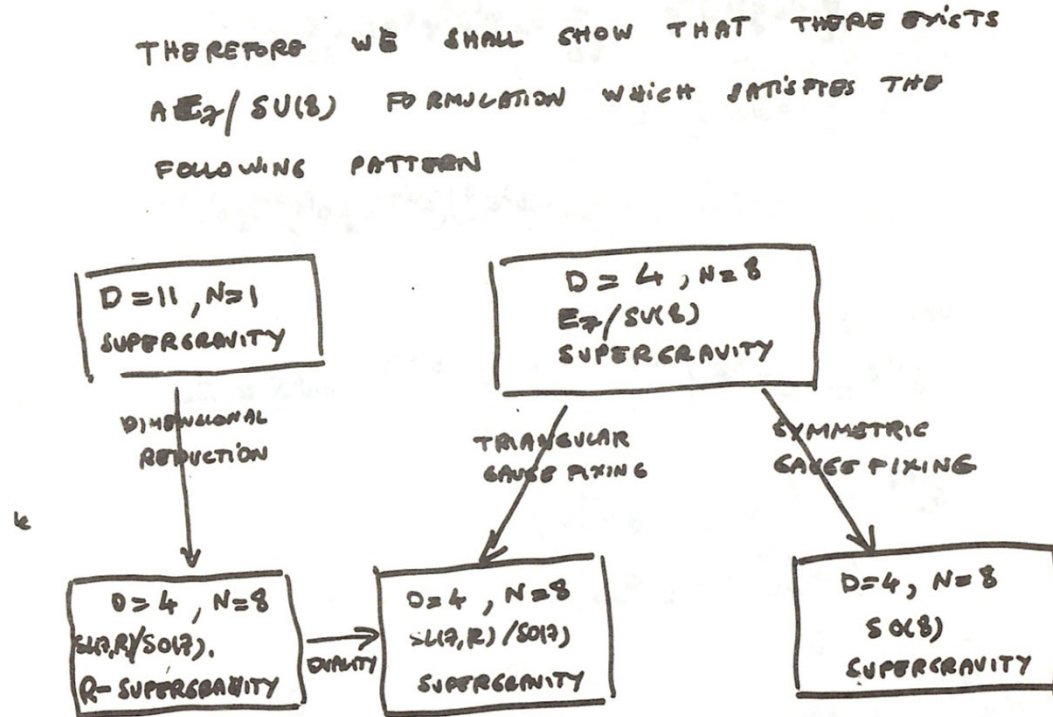 THEREFORE WE SHALL SHOW THAT THERE EXISTS
A E7/SU(8) FORMULATION WHICH SATISFIES THE
FOLLOWING PATTERN
D=11, N=1
SUPERGRAVITY
D=4, N=8
E7/SU(8)
SUPERGRAVITY
DIMENSIONAL
REDUCTION
TRIANGULAR
GAUGE FIXING
SYMMETRIC
GAUGE FIXING
D=4, N=8
SL(7,R)/SO(7).
R-SUPERGRAVITY
DUALITY
D=4, N=8
SL(7,R)/SO(7)
SUPERGRAVITY
D=4, N=8
SO(8)
SUPERGRAVITY